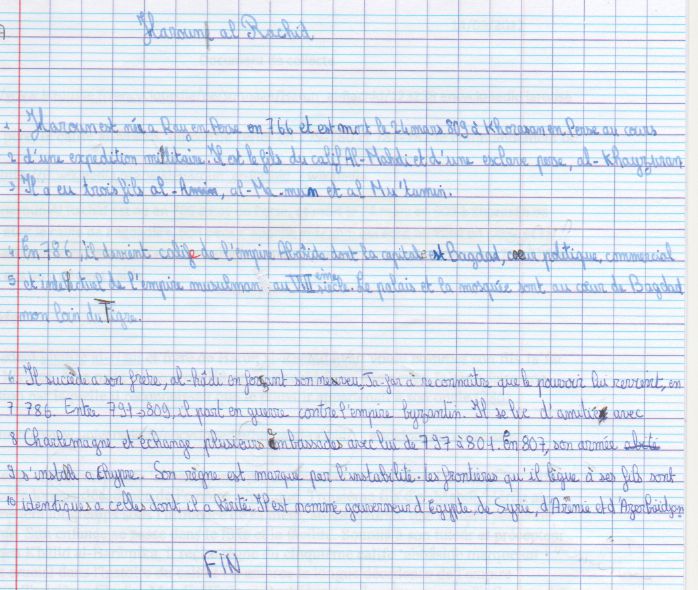 Haroun al Rachid
1. Haroun est née a Ray en Perse en 766 et est mort le 24 mars 809 à Khorasan en Perse au cours
2 d'une expedition militaire. Il est le fils du calif Al-Mahdi et d'une esclave perse, al-Khayzuran
3 Il a eu trois fils al-Amin, al-Ma-mum et al Mu'tamin.
4 En 786, il devient calife de l'empire Abaside dont la capitale est Bagdad, cœur politique, commercial
5 et intellectuel de l'empire musulman au VIII eme siècle. Le palais et la mosquée sont au cœur de Bagdad
non loin du Tigre.
6 Il succède a son frère, al-Hâdi en forçant son neveu, Ja-far à reconnaître que le pouvoir lui revient, en
7 786. Entre 791-809, il part en guerre contre l'empire byzantin. Il se lie d'amitié avec
8 Charlemagne et échange plusieurs embassades avec lui de 797 à 801. En 807, son armée
9 s'install a Chypre. Son règne est marque par l'instabilité. les frontières qu'il lègue à ses fils sont
10 identiques a celles dont il a hérité. Il est nommé gouverneur d'Egypte, de Syrie, d'Arménie et d'Azerbaidjan
FIN